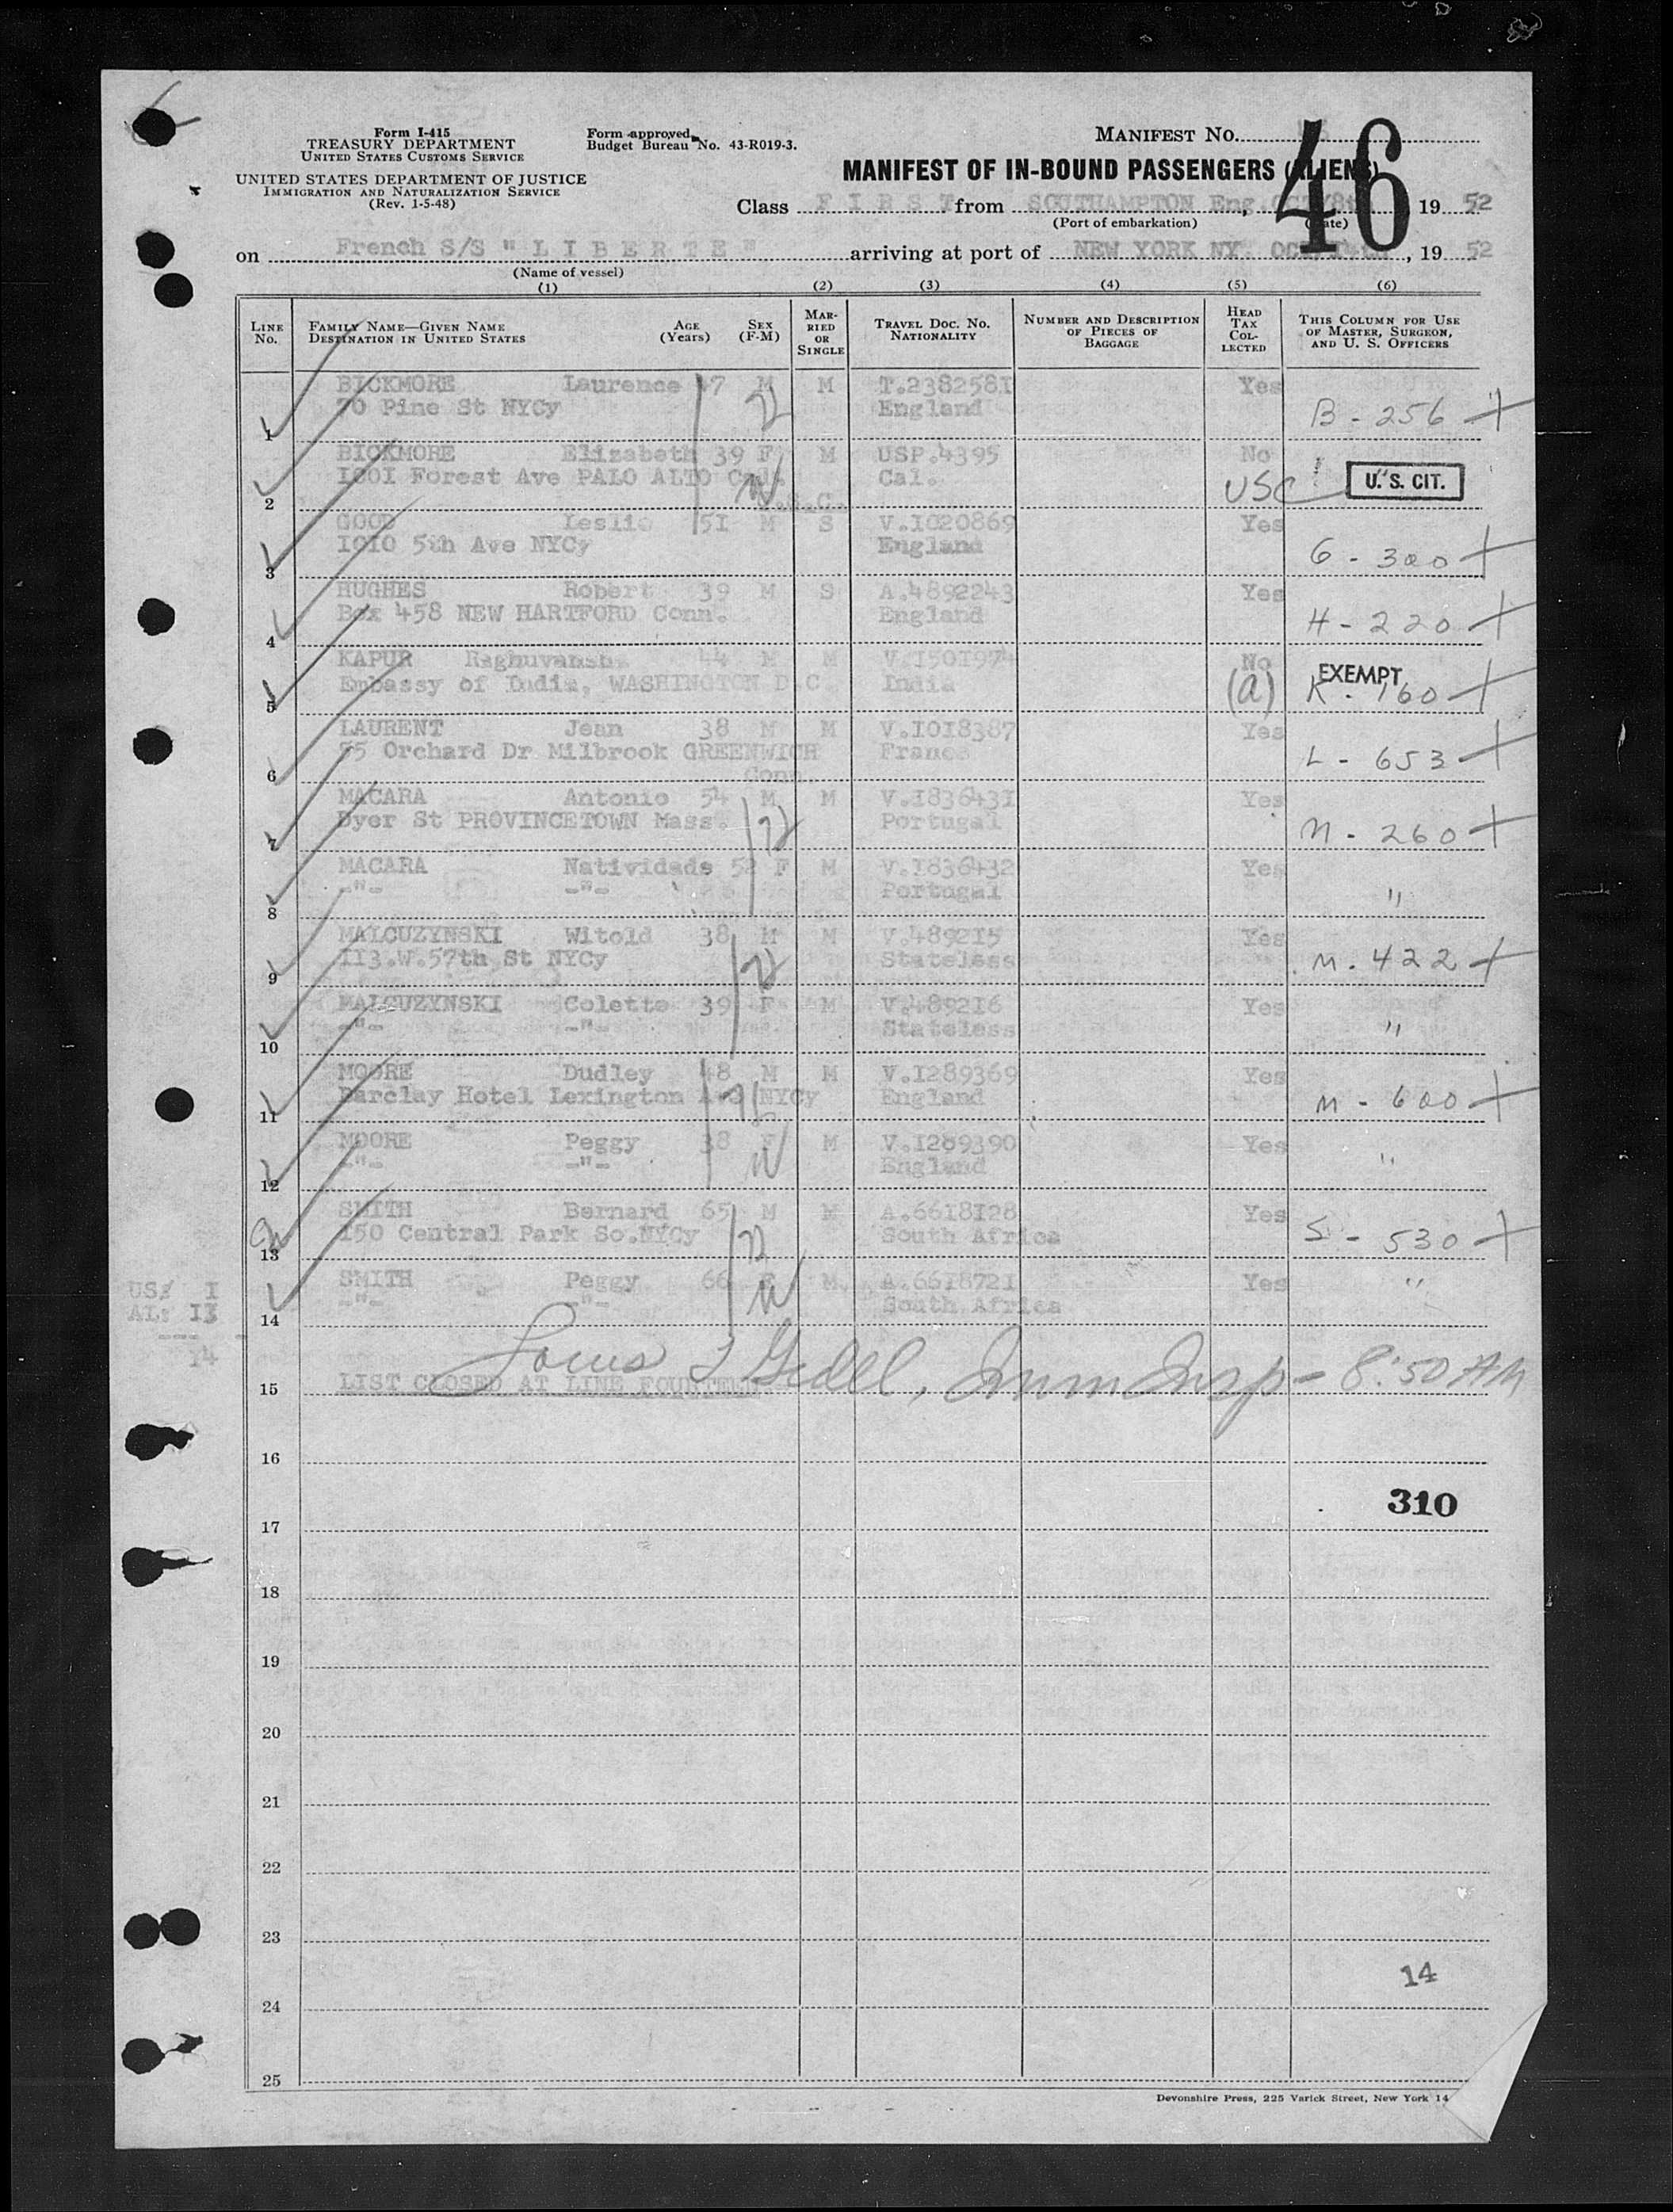 Form I-415
TREASURY DEPARTMENT
UNITED STATES CUSTOMS SERVICE
UNITED STATES DEPARTMENT OF JUSTICE
IMMIGRATION AND NATURALIZATION SERVICE
(Rev. 1-5-48)
Form approved.
Budget Bureau No. 43-R019-3.
MANIFEST NO.
46
MANIFEST OF IN-BOUND PASSENGERS (ALIENS)
Class FIRST from SOUTHAMPTON Eng. OCT/8th 19 52
(Port of embarkation) (Date)
on French S/S "LIBERTE" arriving at port of NEW YORK NY. OCT 14th, 19 52
(Name of vessel)
(1) (2) (3) (4) (5) (6)
LINE No. FAMILY NAME—GIVEN NAME DESTINATION IN UNITED STATES AGE (Years) SEX (F-M) MARRIED OR SINGLE TRAVEL DOC. NO. NATIONALITY NUMBER AND DESCRIPTION OF PIECES OF BAGGAGE HEAD TAX COLLECTED THIS COLUMN FOR USE OF MASTER, SURGEON, AND U. S. OFFICERS
BICKMORE Laurence 47 M M T.2382581 Yes
1 70 Pine St NYCy England B - 256 +
BICKMORE Elizabeth 39 F M USP.4395 No
1001 Forest Ave PALO ALTO Cal. Cal. USC U.S. CIT.
2 U.S.C.
GOOD Leslie 51 M S V.1020869 Yes
3 1010 5th Ave NYCy England G - 300 +
HUGHES Robert 39 M S A.4892243 Yes
4 Box 458 NEW HARTFORD Conn. England H - 220 +
KAPUR Raghuvansh 44 M M V.150197 No EXEMPT
5 Embassy of India, WASHINGTON D.C. India (a) K - 160 +
LAURENT Jean 38 M M V.1018387 Yes
55 Orchard Dr Milbrook GREENWICH France L - 653 +
6 Conn.
MACARA Antonio 54 M M V.1836431 Yes
7 Dyer St PROVINCETOWN Mass. Portugal M - 260 +
MACARA Natividade 52 F M V.1836432 Yes
8 -"- -"- Portugal "
MALCUZYNSKI Witold 38 M M V.489215 Yes
9 113.W.57th St NYCy Stateless M - 422 +
MALCUZYNSKI Colette 39 F M V.489216 Yes
10 -"- -"- Stateless "
MOORE Dudley 48 M M V.1289369 Yes
11 Barclay Hotel Lexington Ave NYCy England M - 600 +
MOORE Peggy 38 F M V.1289390 Yes
12 -"- -"- England "
SMITH Bernard 65 M M A.6618128 Yes
13 150 Central Park So.NYCy South Africa S - 530 +
SMITH Peggy 66 F M. A.6618721 Yes
14 -"- -"- South Africa "
US: 1
AL: 13
14
Louis Gedel, Imm Insp - 8:50 AM
15 LIST CLOSED AT LINE FOURTEEN
16
310
17
18
19
20
21
22
23
14
24
25
Devonshire Press, 225 Varick Street, New York 14